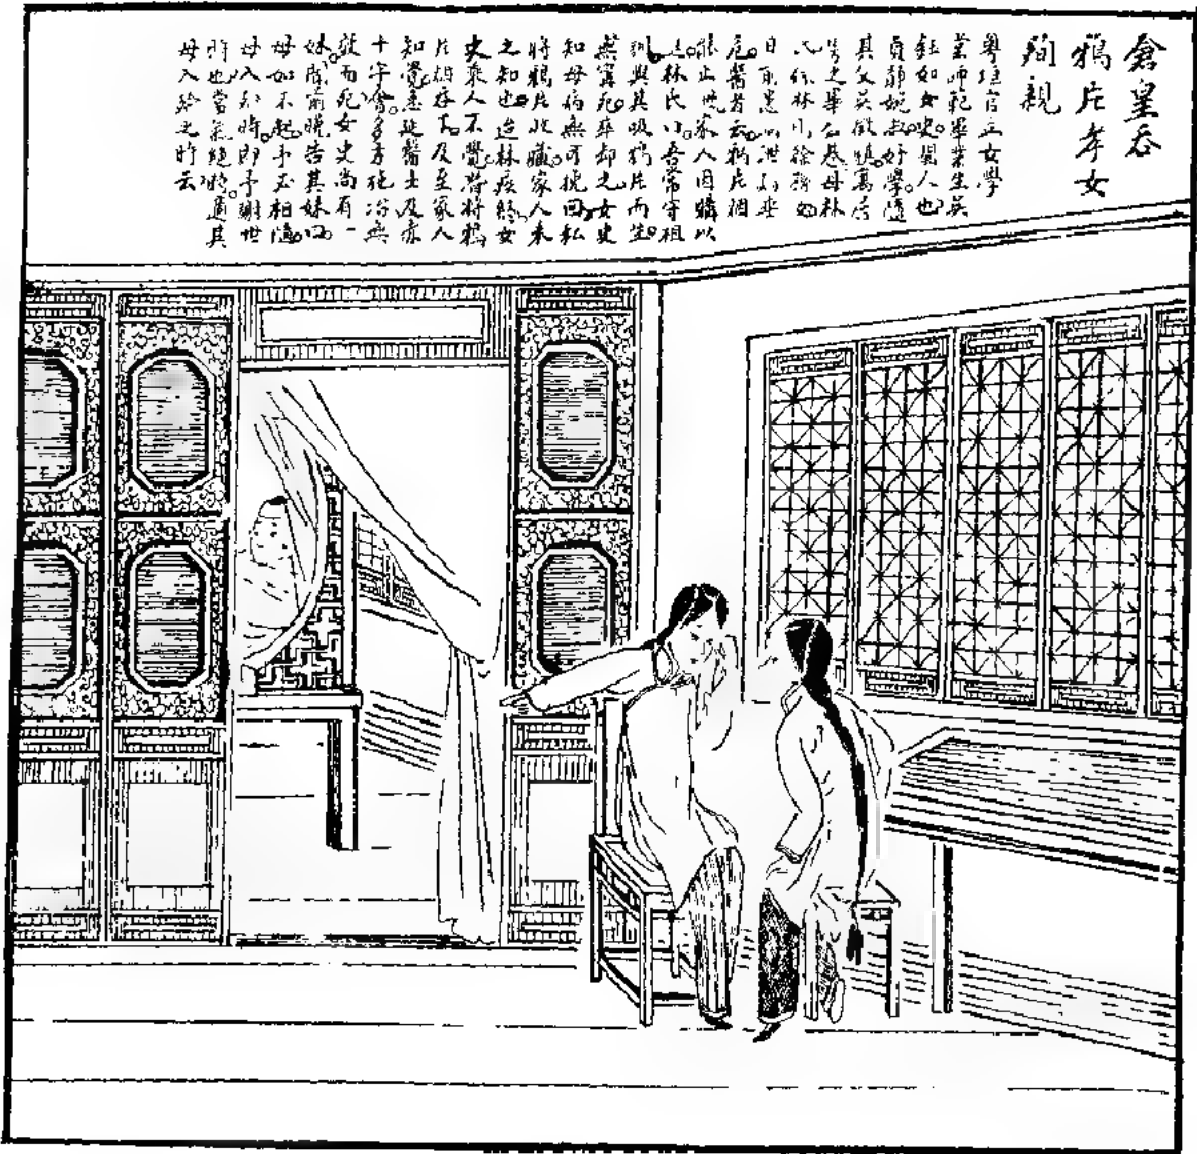 倉皇吞
鴉片孝女
殉親
粵垣官立女學
業師範畢業生吳
鈺如女史閩人也
貞靜婉淑好學隨
其父吳徵 寓居
之華 巷母林
氏 林小徐 女
日前患 泄利垂
危醫者云鴉片 
能止 家人因購以
進林氏曰吾常守祖
訓與其吸鴉片而生
無寧死 卻之女史
知母病無可挽回私
將鴉片收藏家人未
之知也 林疾終女
史乘人不覺將鴉
片 吞下及至家人
知覺急延醫士及赤
十字會多方施治無
效而死女史尚有一
妹聞前晚告其妹曰
母如不起予必相隨
母入 時即予謝世
時也當氣絕時適其
母入 之時云